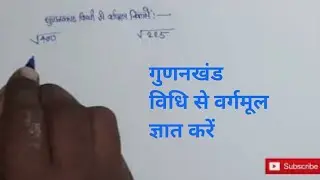 गुणनखंड विधि से वर्गमूल निकालें :—
√400 √225
गुणनखंड
विधि से वर्गमूल
ज्ञात करें
Subscribe